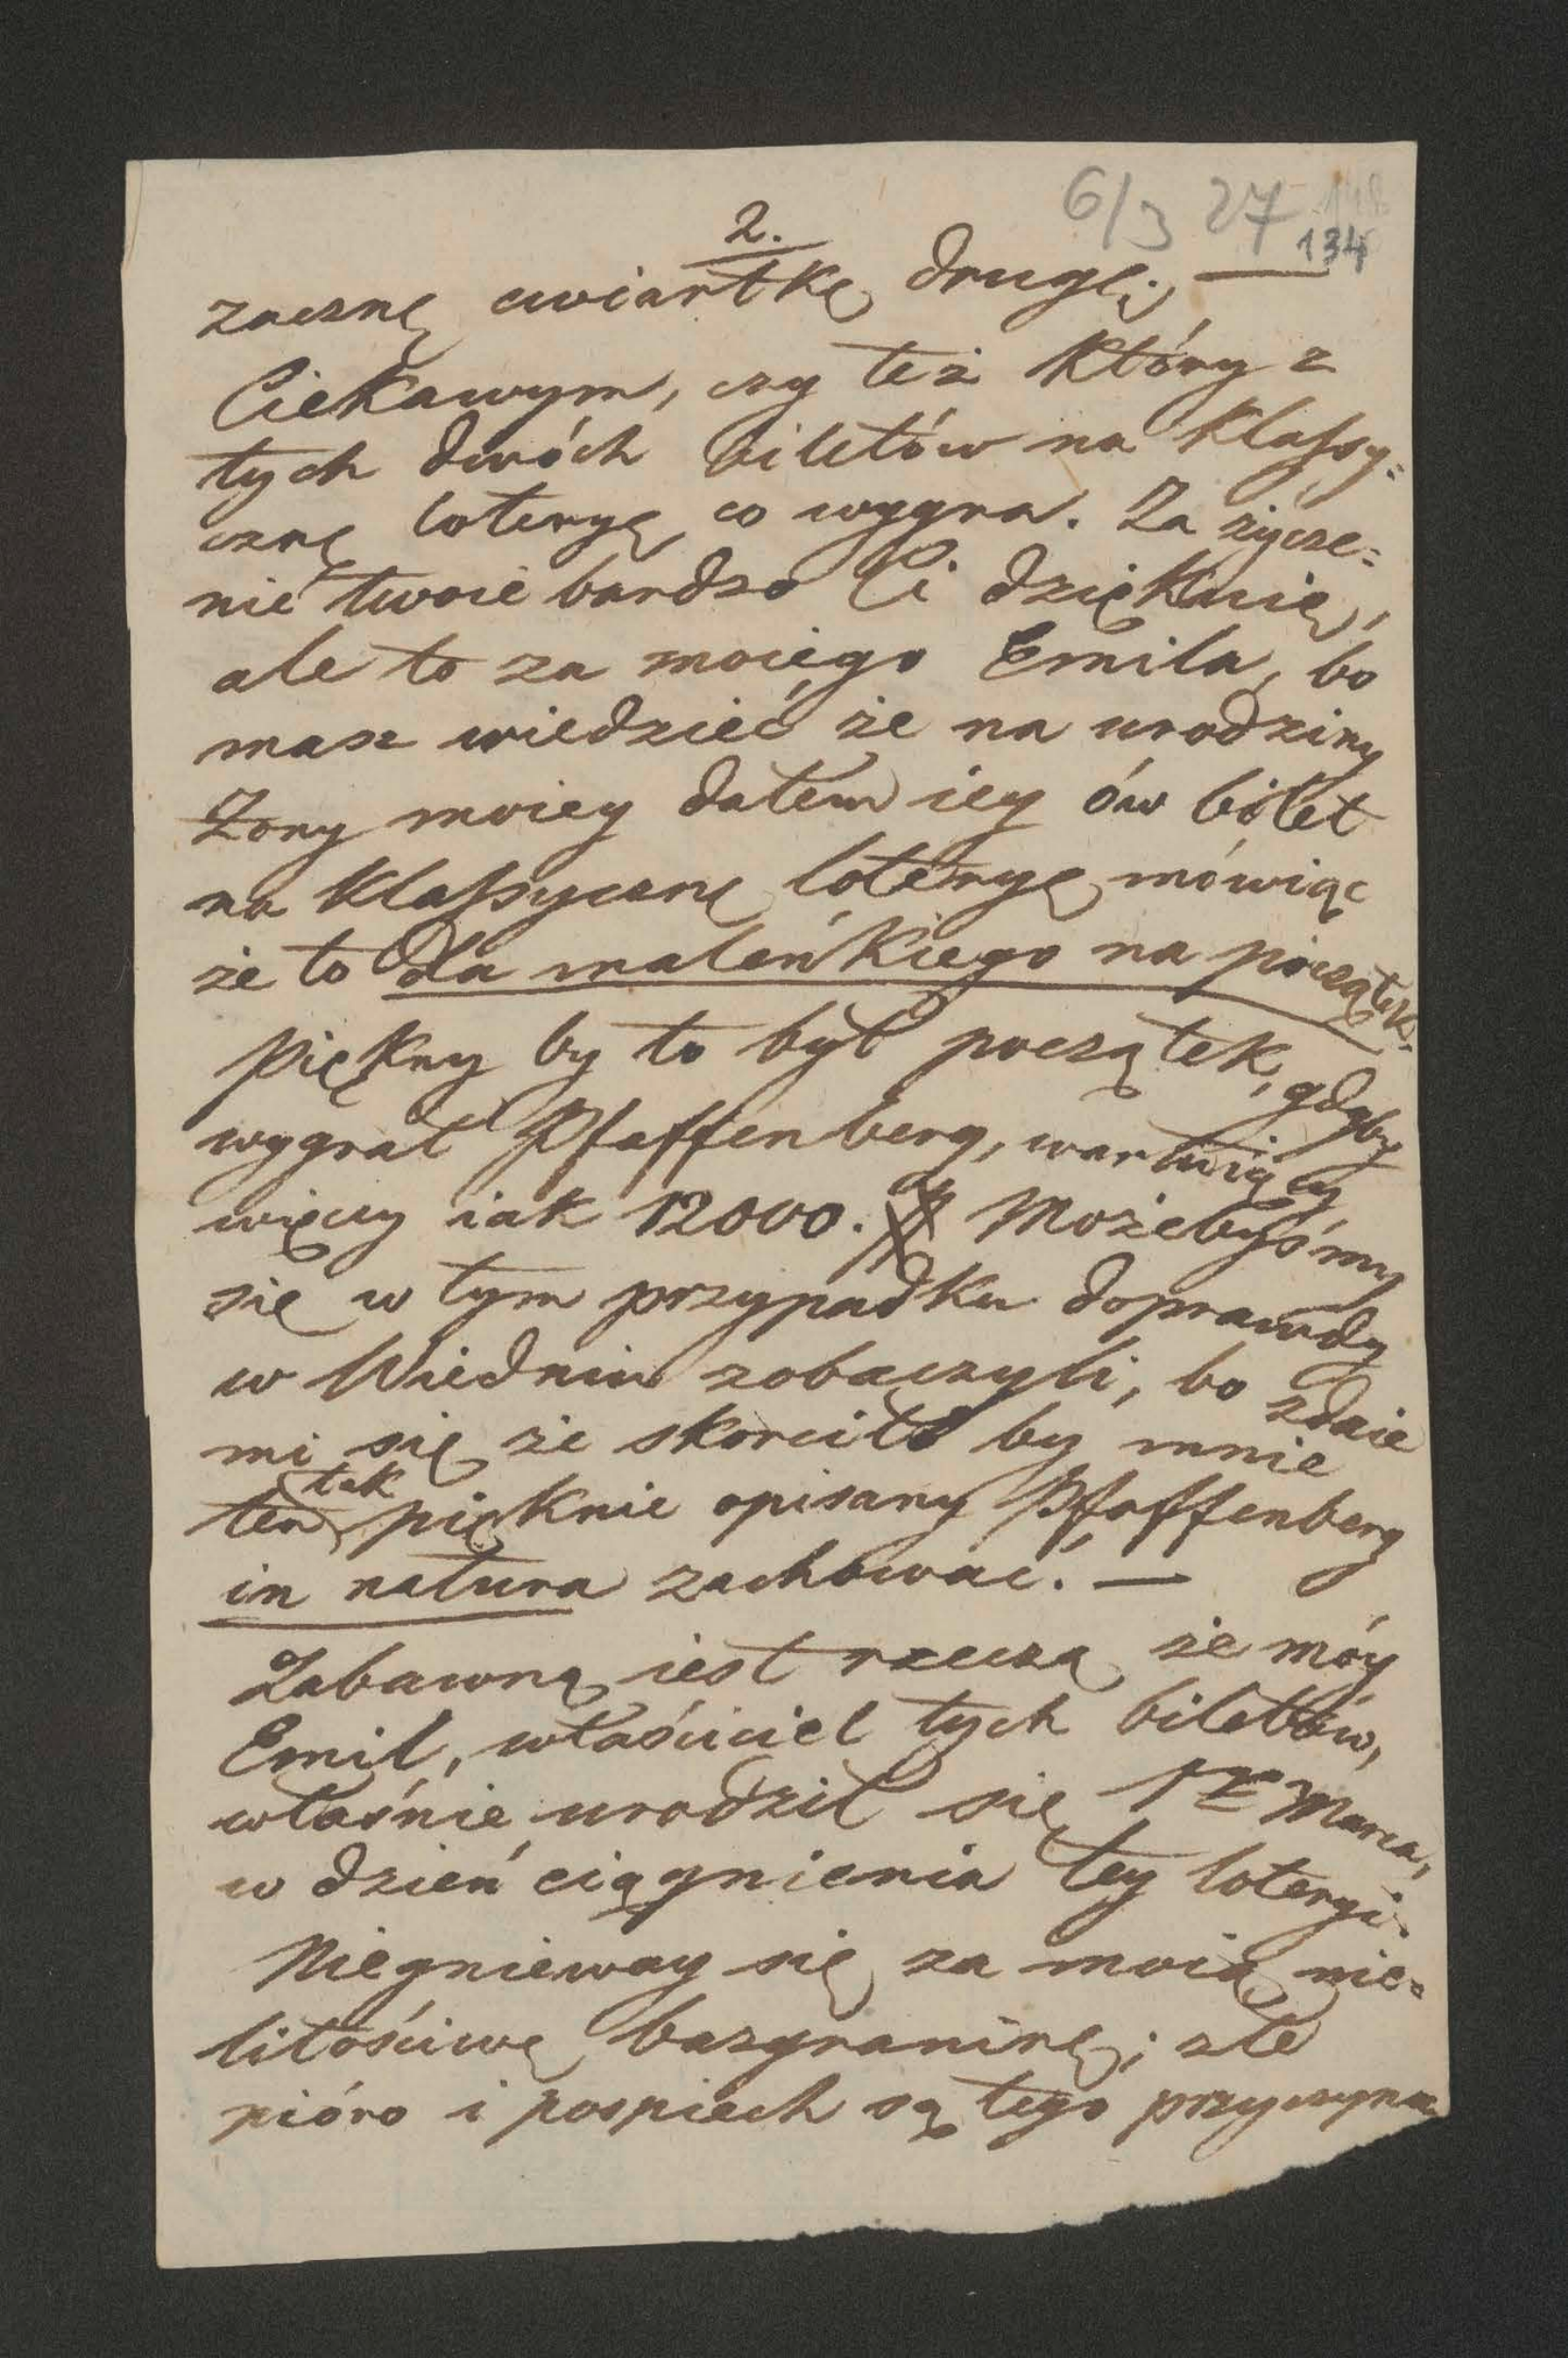 6/3 27
134
2.
zacznę cwiartkę drugę; —
Ciekawym, czy też który z
tych dwóch biletów na klassy=
cznę loteryę co wygra. Za życze=
nie twoie bardzo Ci dziękuię,
ale to za moiego Emila, bo
masz wiedzieć że na urodziny
Żony moiey dałem iey ów bilet
na klassycznę loteryę mówiąc
że to dla maleńkiego na początek.
Piękny by to był początek, gdyby
wygrał Pfaffenberg, wartuiący
więcey iak 12000. # Możebyśmy
się w tym przypadku doprawdy
w Wiedniu zobaczyli, bo zdaie
mi się że skorciło by mnie
ten tak pięknie opisany Pfaffenberg
in natura zachować. —
Zabawną iest rzeczą że móy
Emil, właściciel tych biletów,
właśnie urodził się 1 Marca,
w dzień ciągnienia tey loteryi.
Niegnieway się za moią nie=
litościwę bazgraninę; złe
pióro i pospiech są tego przyczyną